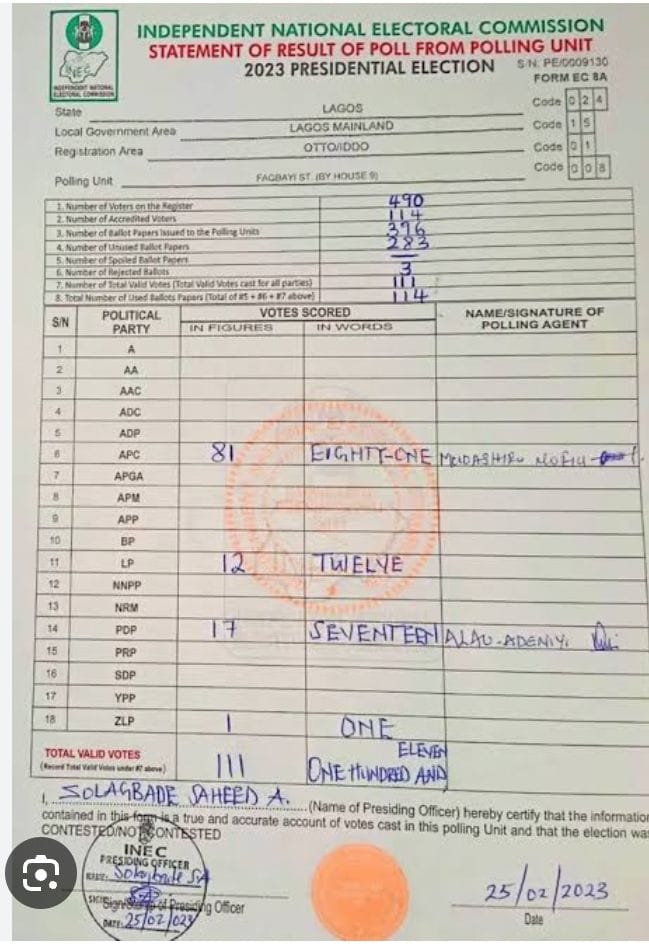 INDEPENDENT NATIONAL ELECTORAL COMMISSION
STATEMENT OF RESULT OF POLL FROM POLLING UNIT
2023 PRESIDENTIAL ELECTION
S/N: PE/0009130
FORM EC 8A
INEC
INDEPENDENT NATIONAL
ELECTORAL COMMISSION
State LAGOS Code 0 2 4
Local Government Area LAGOS MAINLAND Code 1 5
Registration Area OTTO/IDDO Code 0 1
Polling Unit FAGBAYI ST. (BY HOUSE 9) Code 0 0 8
1. Number of Voters on the Register 490
2. Number of Accredited Voters 114
3. Number of Ballot Papers Issued to the Polling Units 396
4. Number of Unused Ballot Papers 283
5. Number of Spoiled Ballot Papers —
6. Number of Rejected Ballots 3
7. Number of Total Valid Votes (Total Valid Votes cast for all parties) 111
8. Total Number of Used Ballots Papers (Total of #5 + #6 + #7 above) 114
S/N POLITICAL PARTY VOTES SCORED NAME/SIGNATURE OF POLLING AGENT
IN FIGURES IN WORDS
1 A
2 AA
3 AAC
4 ADC
5 ADP
6 APC 81 EIGHTY-ONE
7 APGA
8 APM
9 APP
10 BP
11 LP 12 TWELVE
12 NNPP
13 NRM
14 PDP 17 SEVENTEEN ALAO-ADENIYI
15 PRP
16 SDP
17 YPP
18 ZLP 1 ONE
TOTAL VALID VOTES
(Record Total Valid Votes under #7 above) 111 ONE HUNDRED AND ELEVEN
I, SOLAGBADE SAHEED A. (Name of Presiding Officer) hereby certify that the information
contained in this form is a true and accurate account of votes cast in this polling Unit and that the election was
CONTESTED/NOT CONTESTED
INEC
PRESIDING OFFICER
NAME: Solagbade S.A
Sign/Stamp of Presiding Officer
DATE: 25/02/023
25/02/2023
Date